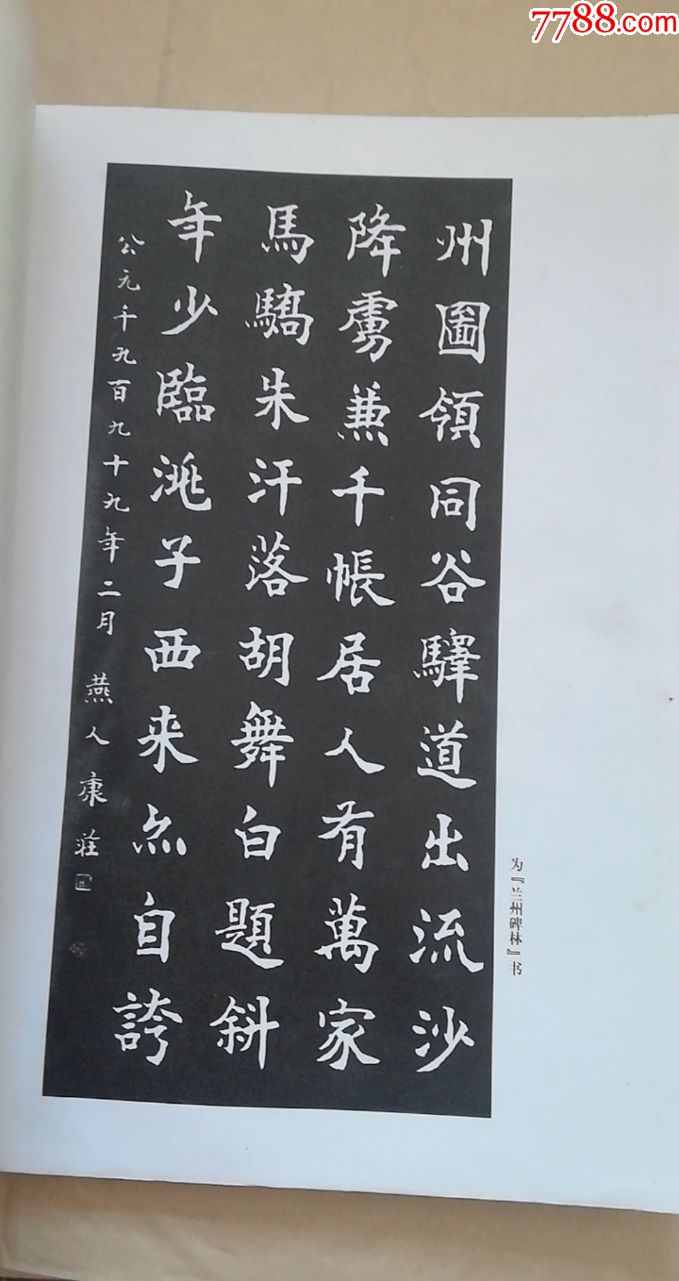 7788.com
州啚領同谷驛道出流沙
降虜兼千帳居人有萬家
馬驕朱汗落胡舞白題斜
年少臨洮子西来亦自誇
公元千九百九十九年二月 燕人康莊
为『兰州碑林』书